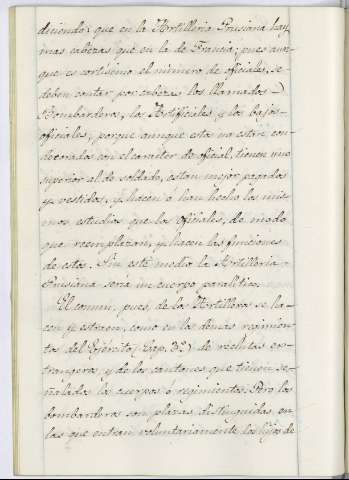 diciendo; que en la Artilleria Prusiana hay
mas cabezas que en la de Francia; pues aun-
que es cortisimo el número de oficiales, se
deben contar por cabezas los llamados
Bombarderos, los Artificiales y los bajos-
oficiales; porque aunque estos no estan con-
decorados con el caracter de oficial, tienen uno
superior al de soldado, estan mejor pagados
y vestidos, y hacen ó han hecho los mis-
mos estudios que los oficiales, de modo
que reemplazan, y hacen las funciones
de estos. Sin este medio la Artilleria
Prusiana sería un cuerpo paralitico.
El comun, pues, de los Artilleros se ha-
cen y extraen, como en los demas regimien-
tos del Egército (Cap. 3º) de reclutas ex-
trangeros, y de los cantones que tienen se-
ñalados los cuerpos ó regimientos. Pero los
bombarderos son plazas distinguidas, en
las que entran voluntariamente los hijos de